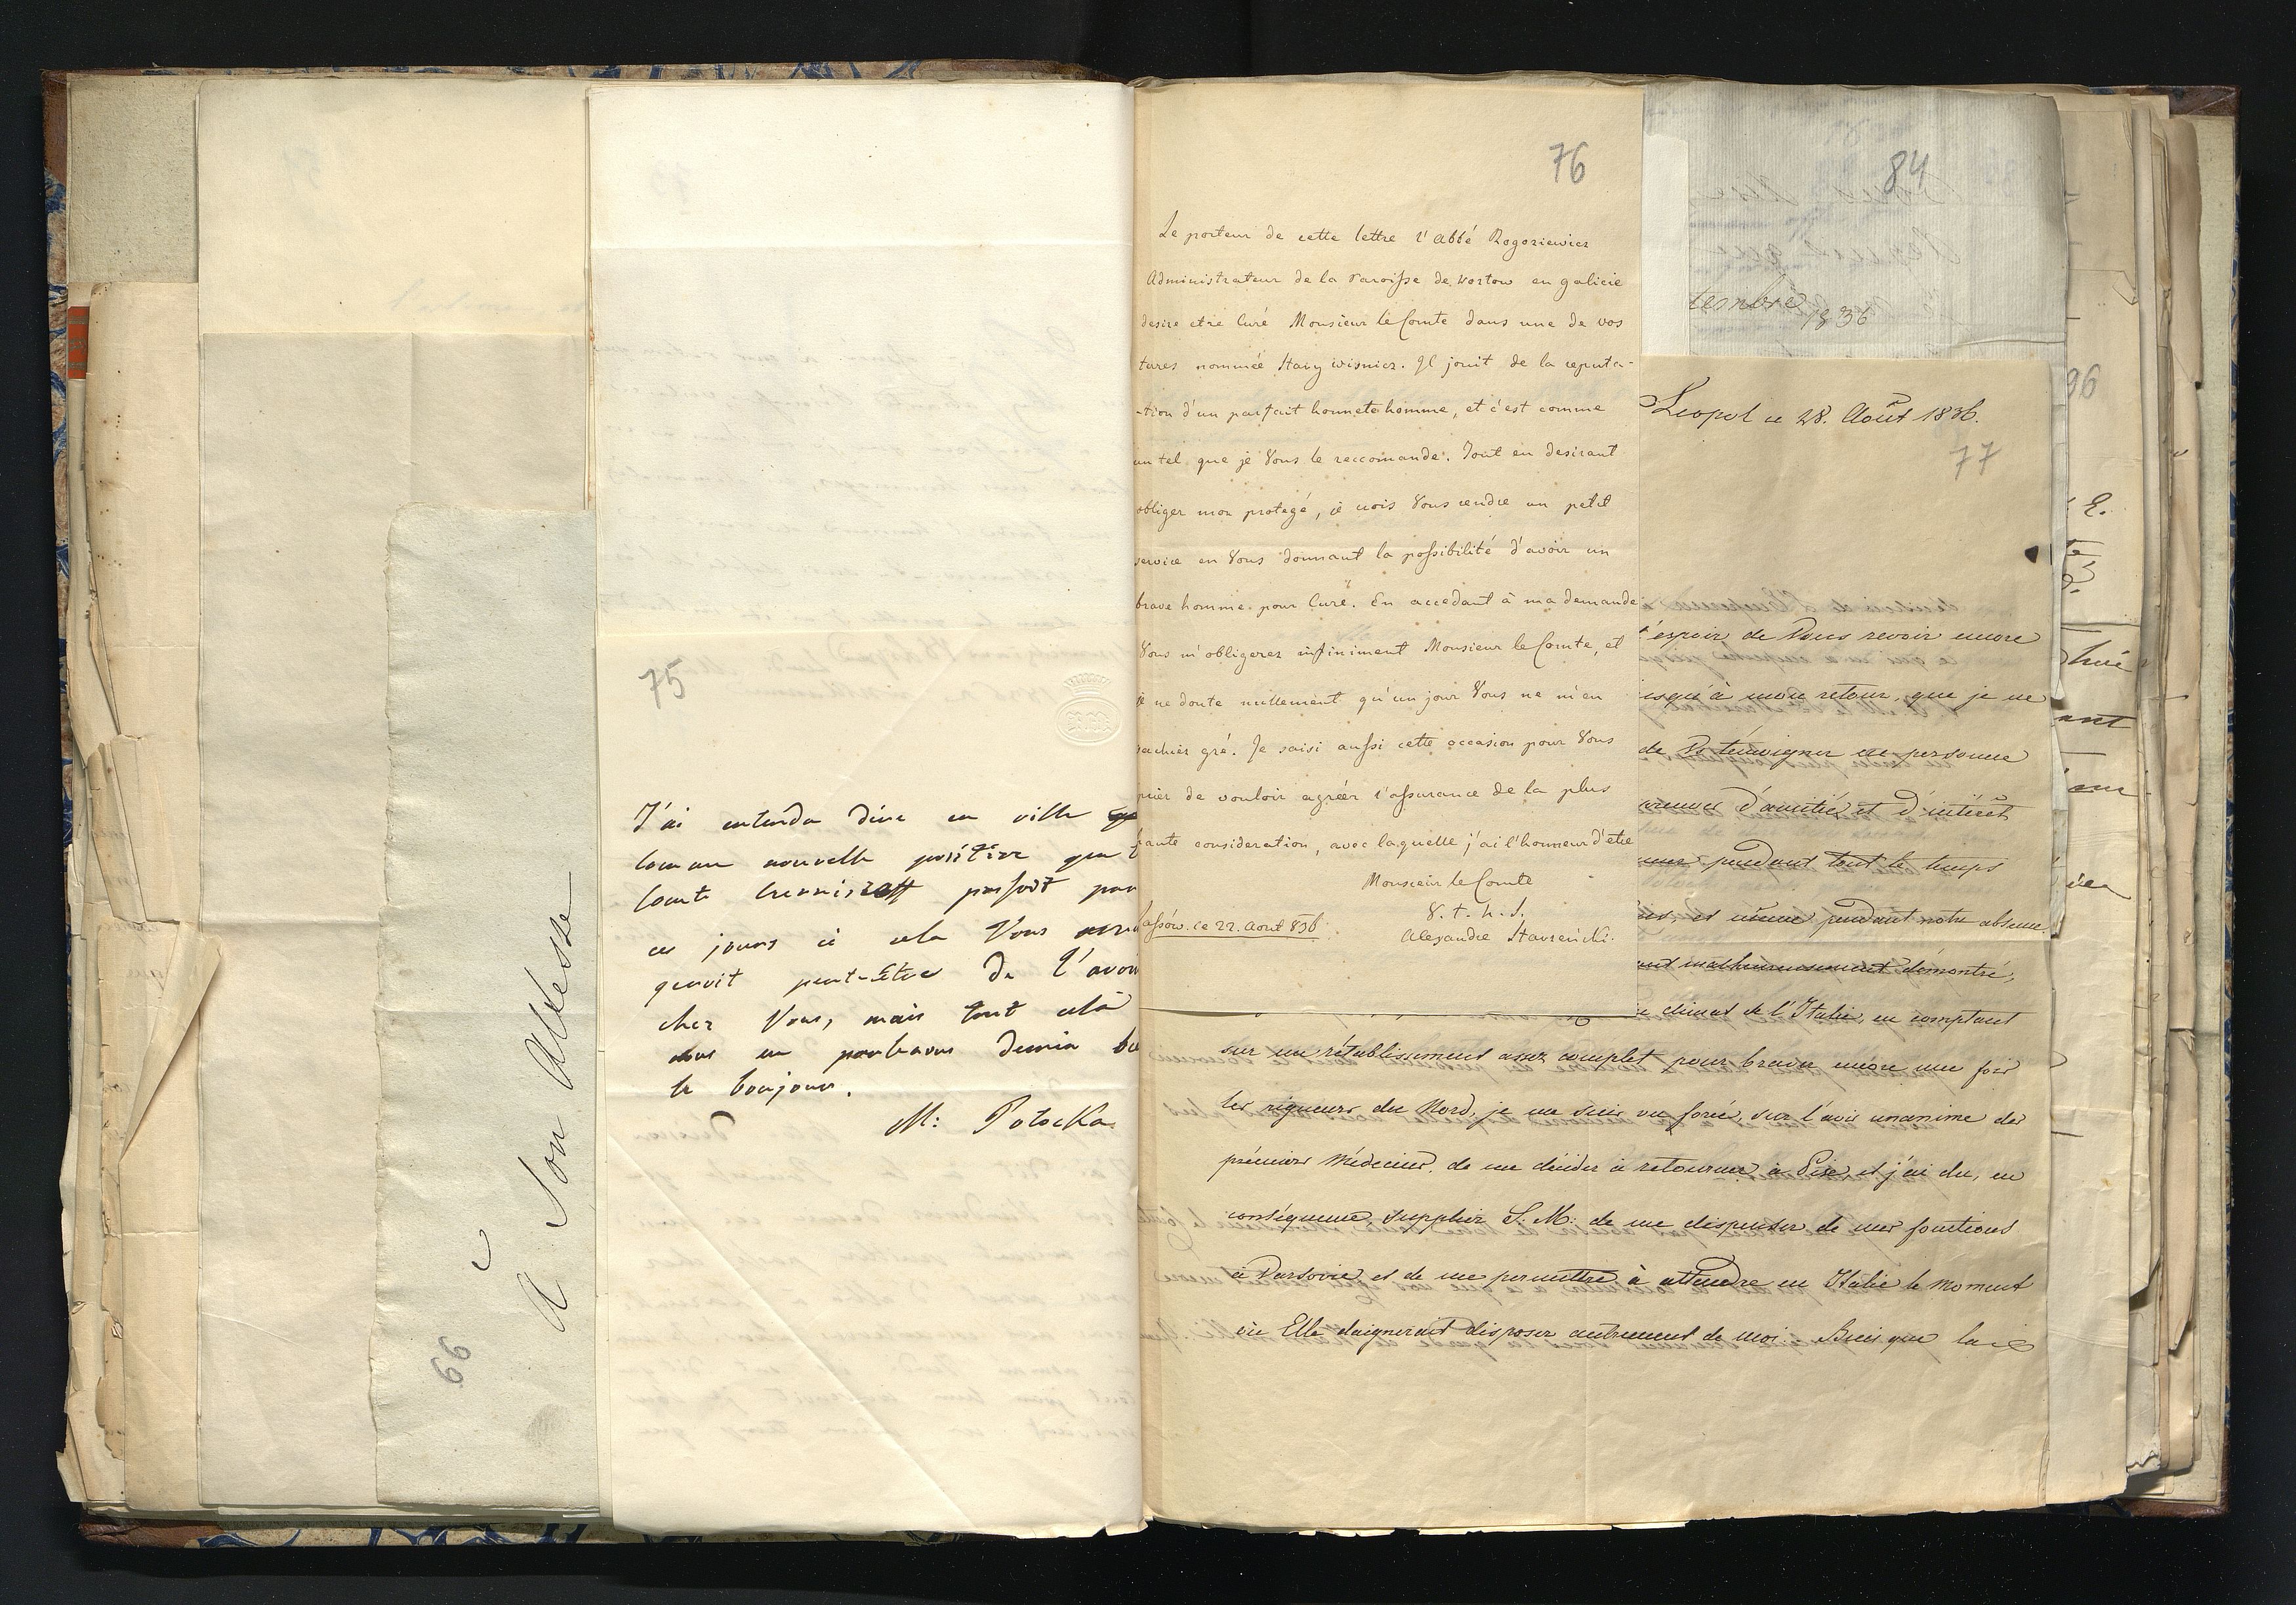 66
à
A Son Altesse
75
J'ai entendu dire en ville
comme nouvelle positive que
comte passoit par
ces jours ci cela Vous
geroit peut-être de l'avoir
cher Vous, mais tout cela
nous en parlerons demain
le bonjour.
M: Potocka
76
Le porteur de cette lettre l'Abbé Rogoziewicz
Administrateur de la Paroisse de en galicie
desire etre Curé Monsieur le Comte dans une de vos
terres nommée Stary wisnicz. Il jouit de la reputa-
-tion d'un parfait honnete homme, et c'est comme
un tel que je Vous le reccomande. Tout en desirant
obliger mon protegé, je crois Vous rendre un petit
service en Vous donnant la possibilité d'avoir un
brave homme pour Curé. En accedant à ma demande
Vous m'obligerez infiniment Monsieur le Comte, et
je ne doute nullement qu'un jour Vous ne m'en
sachiez gré. Je saisi aussi cette occasion pour Vous
prier de vouloir agréer l'assurance de la plus
haute consideration, avec laquelle j'ai l'honneur d'etre
Monsieur le Comte
V. t. h. S.
ce 22. Aout 836
Alexandre
84
tembre
1836
Leopol ce 28. Août 1836.
77
l'espoir de Vous revoir encore
jusqu'à mon retour, que je ne
de Vs témoigner en personne
preuves d'amitié et d'intérêt
pendant tout le temps
et même pendant notre absence.
ant malheureusement démontré,
climat de l'Italie, en comptant
sur un rétablissement assez complet pour braver encore une fois
les rigueurs du Nord, je me suis vu forcé, sur l'avis unanime des
prémiers Médecins, de me décider à retourner à Pise, et j'ai du, en
conséquence, supplier S. M. de me dispenser de mes fonctions
à Varsovie et de me permettre à attendre en Italie le moment
où Elle daignerait disposer autrement de moi. Bien que la
96
E.
ant